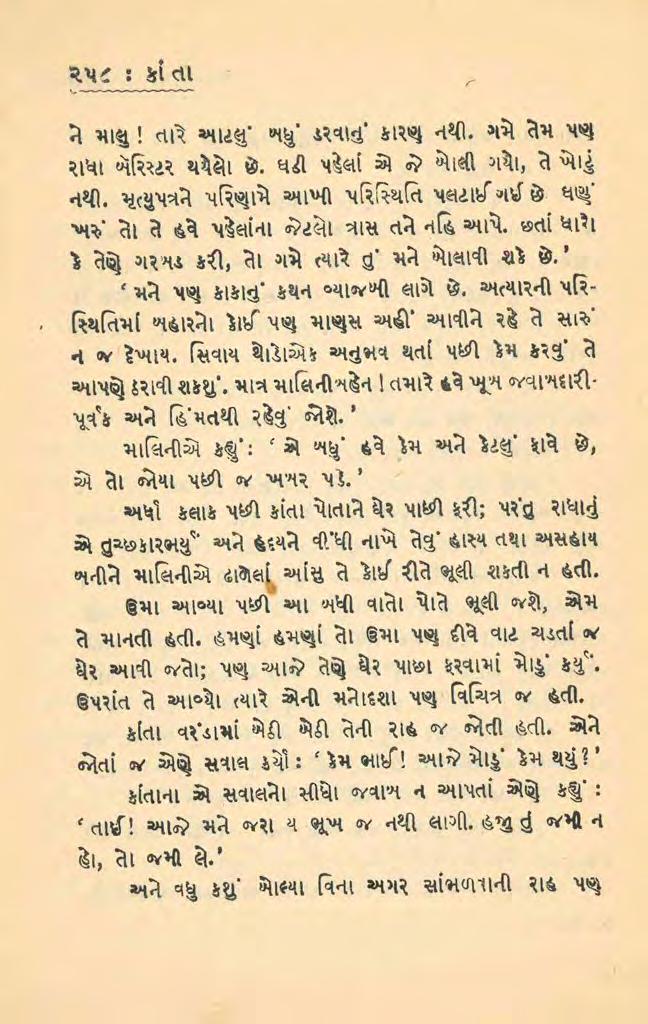 ૨૫૮ : કાંતા
ને માલુ ! તારે આટલું બધું ડરવાનું કારણ નથી. ગમે તેમ પણ
રાધા બૅરિસ્ટર થયેલો છે. ઘડી પહેલાં એ જે બોલી ગયો, તે ખોટું
નથી. મૃત્યુપત્રને પરિણામે આખી પરિસ્થિતિ પલટાઈ ગઈ છે ઘણું
ખરું તો તે હવે પહેલાંના જેટલો ત્રાસ તને નહિ આપે. છતાં ધારો
કે તેણે ગરબડ કરી, તો ગમે ત્યારે તું મને બોલાવી શકે છે.’
‘ મને પણ કાકાનું કથન વ્યાજબી લાગે છે. અત્યારની પરિ-
સ્થિતિમાં બહારનો કોઈ પણ માણસ અહીં આવીને રહે તે સારું
ન જ દેખાય. સિવાય થોડોએક અનુભવ થતાં પછી કેમ કરવું તે
આપણે ઠરાવી શકશું. માત્ર માલિનીબહેન ! તમારે હવે ખૂબ જવાબદારી-
પૂર્વક અને હિંમતથી રહેવું જોશે.’
માલિનીએ કહ્યું : ‘ એ બધું હવે કેમ અને કેટલું ફાવે છે,
એ તો જોયા પછી જ ખબર પડે.’
અર્ધા કલાક પછી કાંતા પોતાને ઘેર પાછી ફરી; પરંતુ રાધાનું
એ તુચ્છકારભર્યું અને હૃદયને વીંધી નાખે તેવું હાસ્ય તથા અસહાય
બનીને માલિનીએ ઢાળેલાં આંસુ તે કોઈ રીતે ભૂલી શકતી ન હતી.
ઉમા આવ્યા પછી આ બધી વાતો પોતે ભૂલી જશે, એમ
તે માનતી હતી. હમણાં હમણાં તો ઉમા પણ દીવે વાટ ચડતાં જ
ઘેર આવી જતો; પણ આજે તેણે ઘેર પાછા ફરવામાં મોડું કર્યું.
ઉપરાંત તે આવ્યો ત્યારે એની મનોદશા પણ વિચિત્ર જ હતી.
કાંતા વરંડામાં બેઠી બેઠી તેની રાહ જ જોતી હતી. એને
જોતાં જ એણે સવાલ કર્યો : ‘ કેમ ભાઈ! આજે મોડું કેમ થયું?’
કાંતાના એ સવાલનો સીધો જવાબ ન આપતાં એણે કહ્યું :
‘ તાઈ! આજે મને જરા ય ભૂખ જ નથી લાગી. હજી તું જમી ન
હો, તો જમી લે.’
અને વધુ કશું બોલ્યા વિના અગર સાંભળવાની રાહ પણ